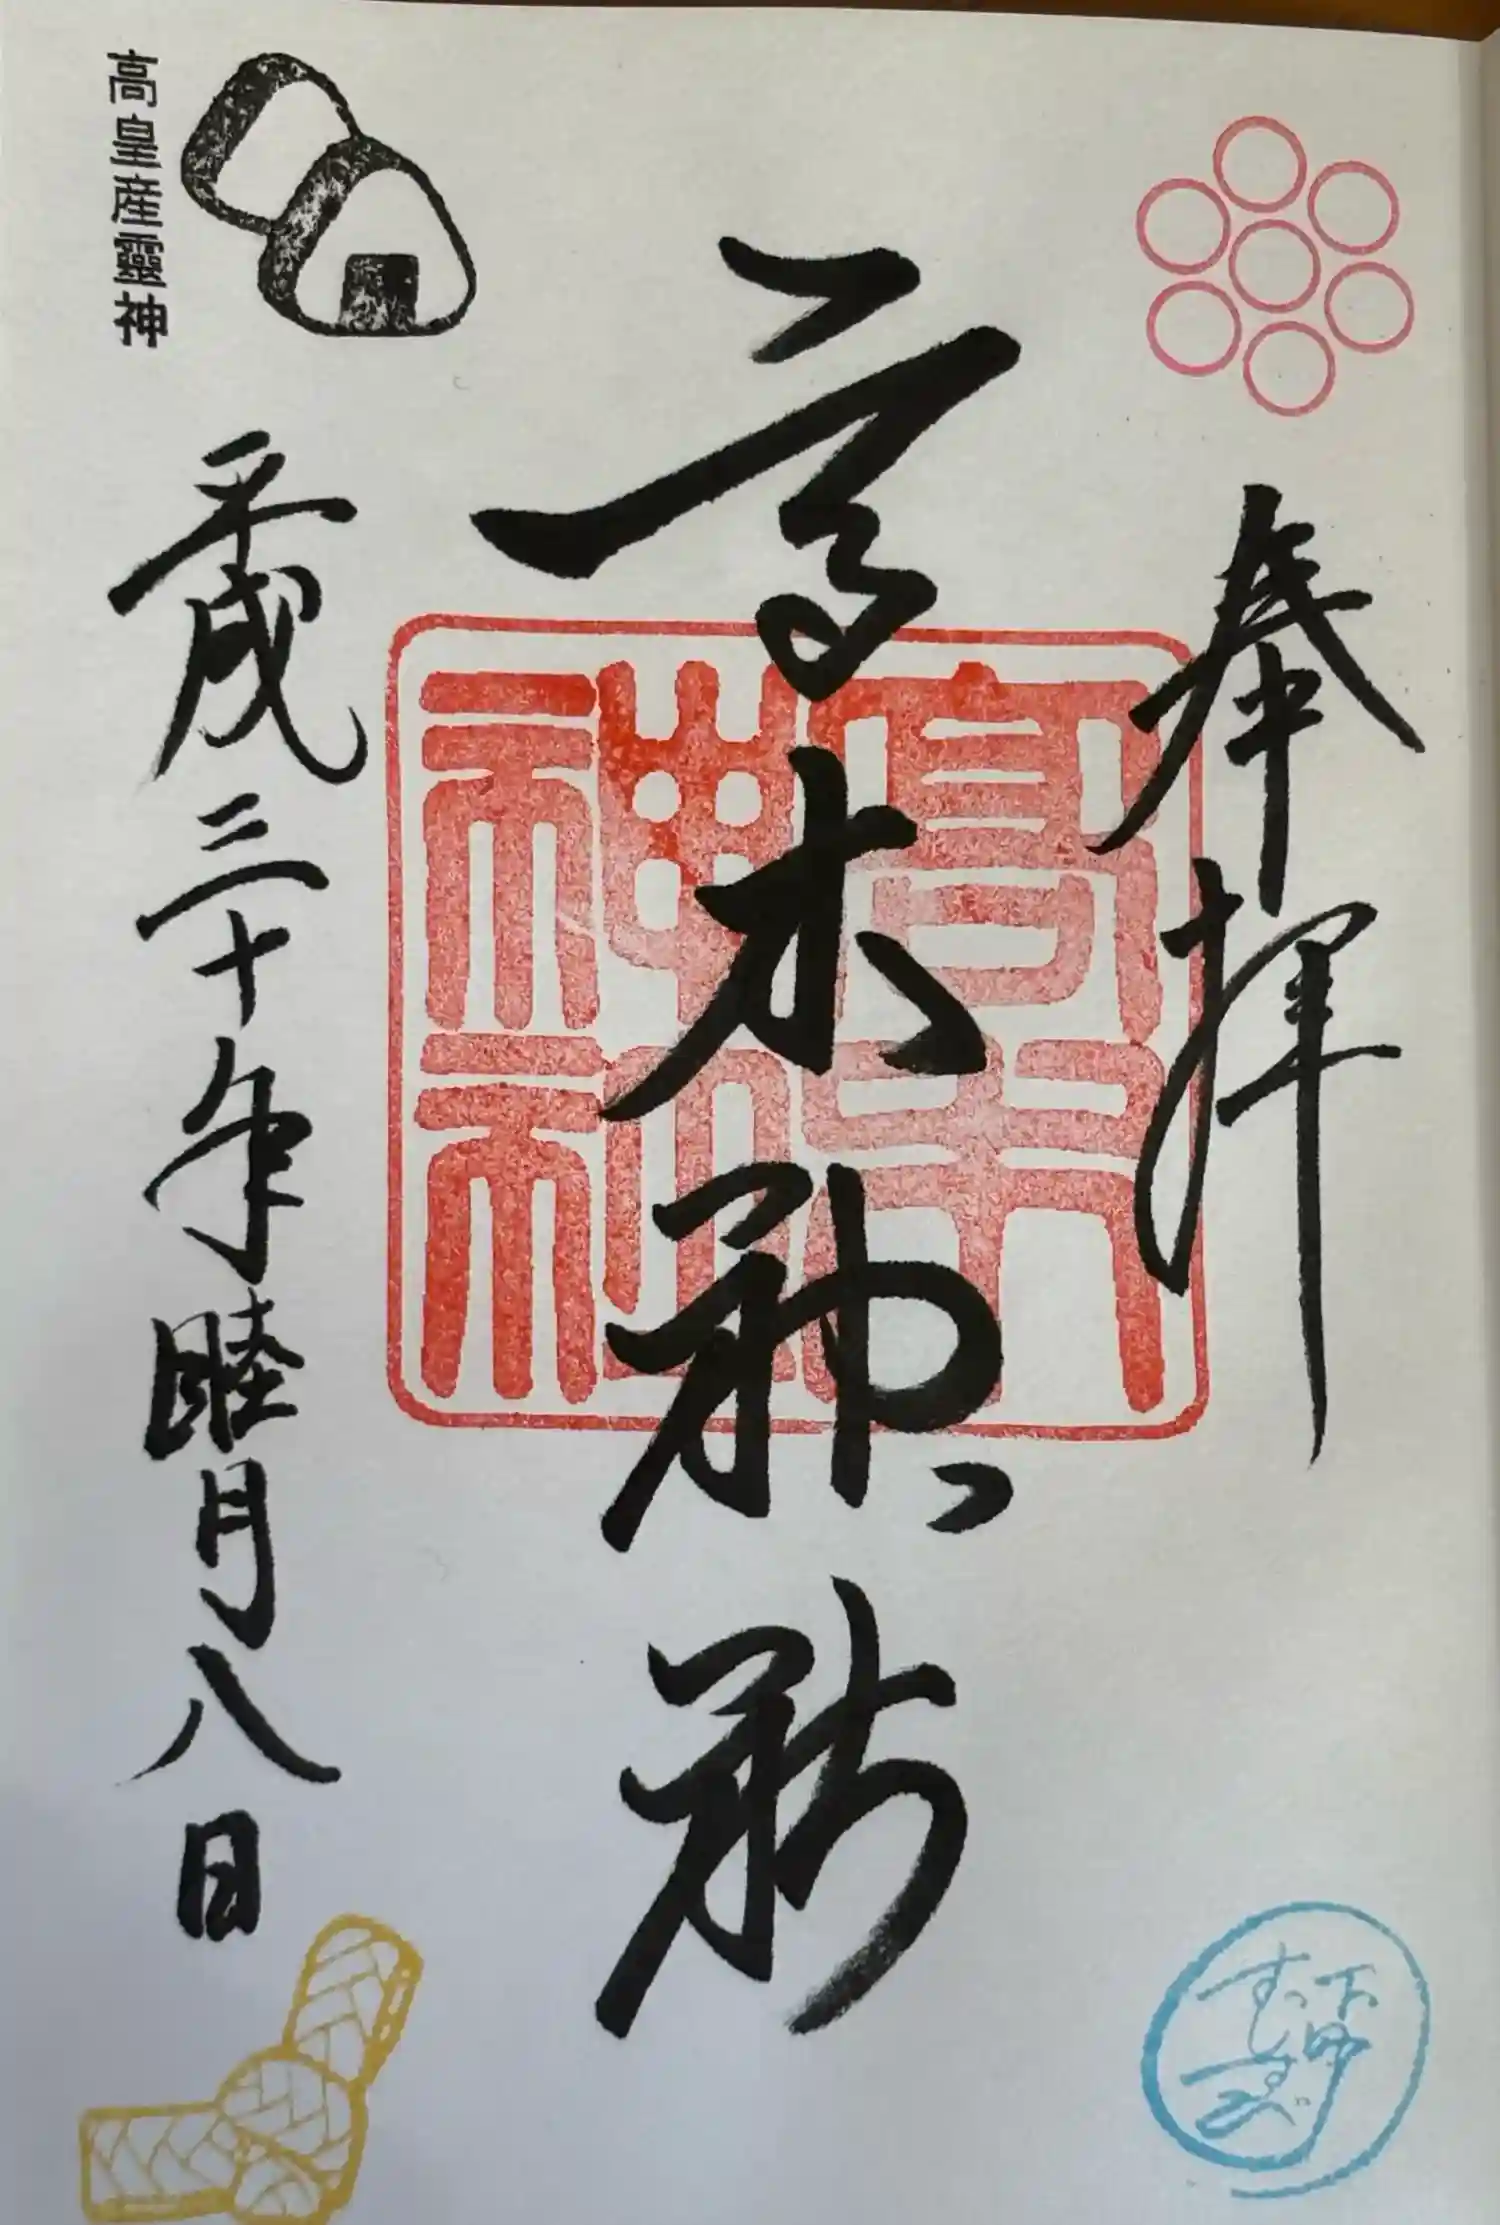 奉拝
高木神社
高木神社
平成三十年睦月八日
高皇産靈神
下町
すっしすべ